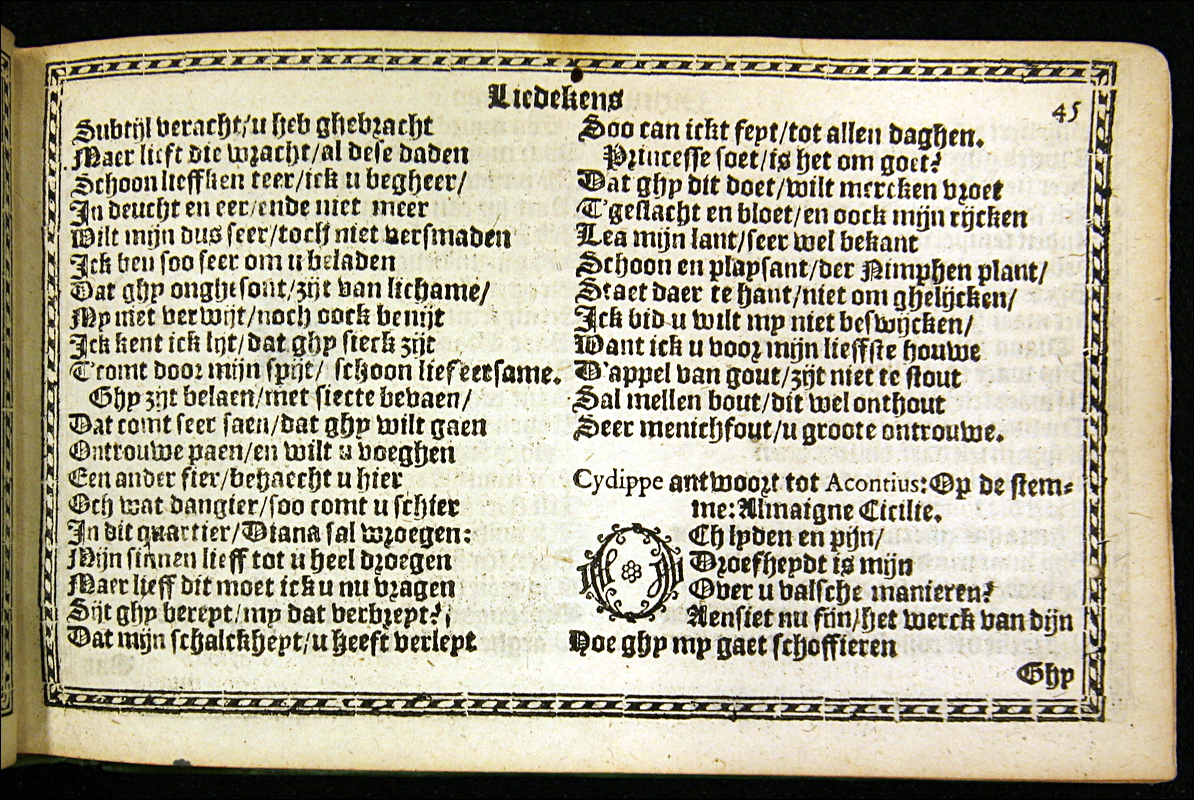 Liedekens
45
Subtijl veracht/u heb ghebracht
Maer lieft die wracht/al dese daden
Schoon lieffken teer/ick u begheer/
In deucht en eer/ende niet meer
Wilt mijn dus seer/toch niet versmaden
Ick ben soo seer om u beladen
Dat ghy onghesont/zijt van lichame/
My niet verwijt/noch oock benijt
Ick kent ick lijt/dat ghy sieck zijt
T'comt door mijn spijt/schoon lief eersame.
Ghy zijt belaen/met siecte bevaen/
Dat comt seer saen/dat ghy wilt gaen
Ontrouwe paen/en wilt u voeghen
Een ander fier/behaecht u hier
Och wat dangier/soo comt u schier
In dit quartier/Diana sal wroegen:
Mijn sinnen lieff tot u heel droegen
Maer lieff dit moet ick u nu vragen
Sijt ghy bereyt/my dat verbreyt?
Dat mijn schalckheyt/u heeft verleyt
Soo can ickt seyt/tot allen daghen.
Princesse soet/is het om goet?
Dat ghy dit doet/wilt mercken vroet
T'geslacht en bloet/en oock mijn rijcken
Lea mijn lant/seer wel bekant
Schoon en playsant/der Nimphen plant/
Staet daer te hant/niet om ghelijcken/
Ick bid u wilt my niet beswijcken/
Want ick u voor mijn lieffste houwe
D'appel van gout/zijt niet te stout
Sal mellen bout/dit wel onthout
Seer menichfout/u groote ontrouwe.
Cydippe antwoort tot Acontius: Op de stem-
me: Almaigne Cicilie.
Ch lyden en pijn/
Droefheydt is mijn
Over u valsche manieren?
Aensiet nu fijn/het werck van dijn
Hoe ghy my gaet schoffieren
Ghy